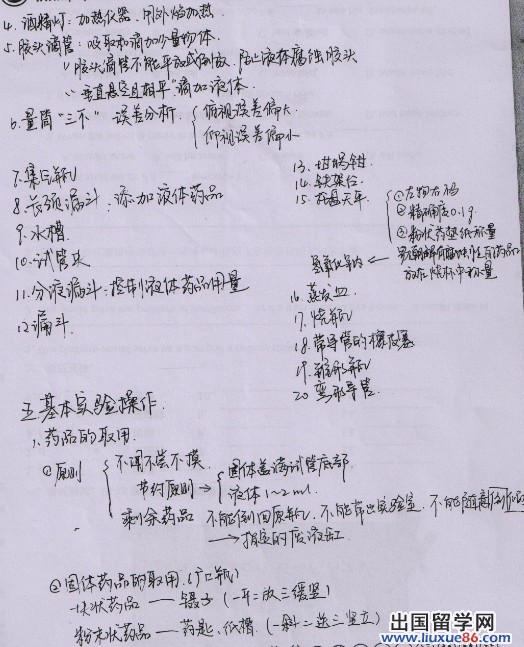 4. 酒精灯: 加热仪器. 用外焰加热.
5. 胶头滴管: 吸取和滴加少量物体
胶头滴管不能平放或倒放. 防止液体腐蚀胶头
"垂直悬空且相平"滴加液体.
6. 量筒"三不" 误差分析.
俯视误差偏大.
仰视误差偏小
7. 集气瓶
8. 长颈漏斗: 添加液体药品
9. 水槽.
10. 试管夹
11. 分液漏斗: 控制液体药品用量
12. 漏斗.
13. 坩埚钳.
14. 铁架台.
15. 托盘天平.
①左物右码
②精确度0.1g.
③粉状药垫纸称量
放在烧杯中称量
氢氧化钠
16. 蒸发皿.
17. 烧瓶
18. 带导管的橡皮塞
19. 锥形瓶
20. 弯形导管.
五. 基本实验操作.
1. 药品的取用.
①原则
不闻不尝不摸.
节约原则→
固体盖满试管底部
液体1~2ml.
剩余药品 不能倒回原瓶. 不能带出实验室. 不能随意
→指定的废液缸.
②固体药品的取用.(广口瓶)
块状药品——镊子 (一平二放三缓竖)
粉末状药品——药匙、纸槽. (一斜二送三竖立)
出国留学网
www.liuxue86.com